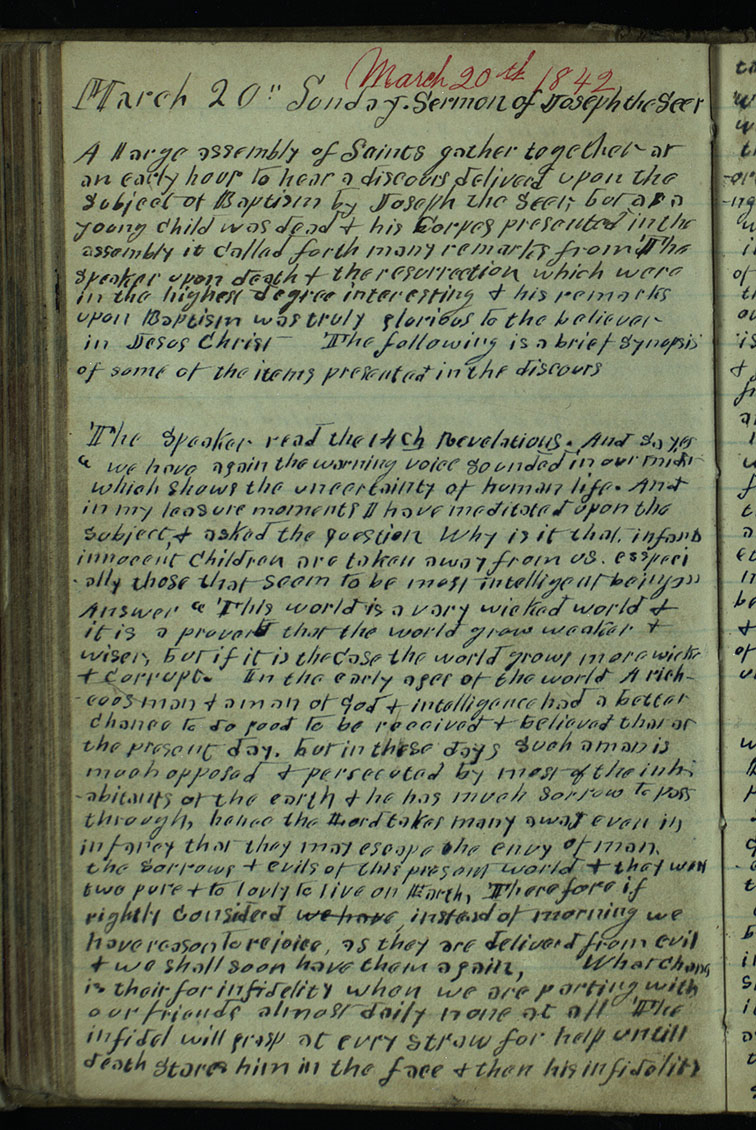 March 20th 1842
March 20th Sunday. Sermon of Joseph the Seer
A large assembly of Saints gather together at
an early hour to hear a discours deliverd upon the
Subject of Baptism by Joseph the Seer, but as a
young child was dead & his Corpes presented in the
assembly it called forth many remarks from The
Speaker upon death & the resurrection which were
in the highest degree interesting & his remarks
upon Baptism was truly glorious to the believer
in Jesus Christ The following is a brief Synopsis
of some of the items presented in the discours
The Speaker read the 14 ch Revelations. And Sayes
" we have again the warning voice sounded in our midst
which shows the uncertainty of human life. And
in my leasure moments I have meditated upon the
subject, & asked the question Why is it that infants
innocent Children are taken away from us. esspeci
-ally those that seem to be most intelligent beings"
Answer " This world is a vary wicked world &
it is a proverb that the world grow weaker &
wiser, but if it is the case the world grows more wicked
& Corrupt. In the early ages of the world A rich-
-eous man & a man of God & intelligence had a better
chance to do good to be received & believed than at
the present day. but in these days Such a man is
much opposed & persecuted by most of the inh-
-abitants of the earth & he has much Sorrow to pass
through, hence the Lord takes many away even in
infancy that they may escape the envy of man.
the Sorrows & evils of this present world & they were
two pure & to lovly to live on Earth, Therefore if
rightly Considerd we have, instead of morning we
have reason to rejoice, as they are deliverd from evil
& we shall soon have them again, What chang
is their for infidelity when we are parting with
our friends almost daily none at all The
infidel will grasp at evry straw for help untill
death stares him in the face & then his infidelity